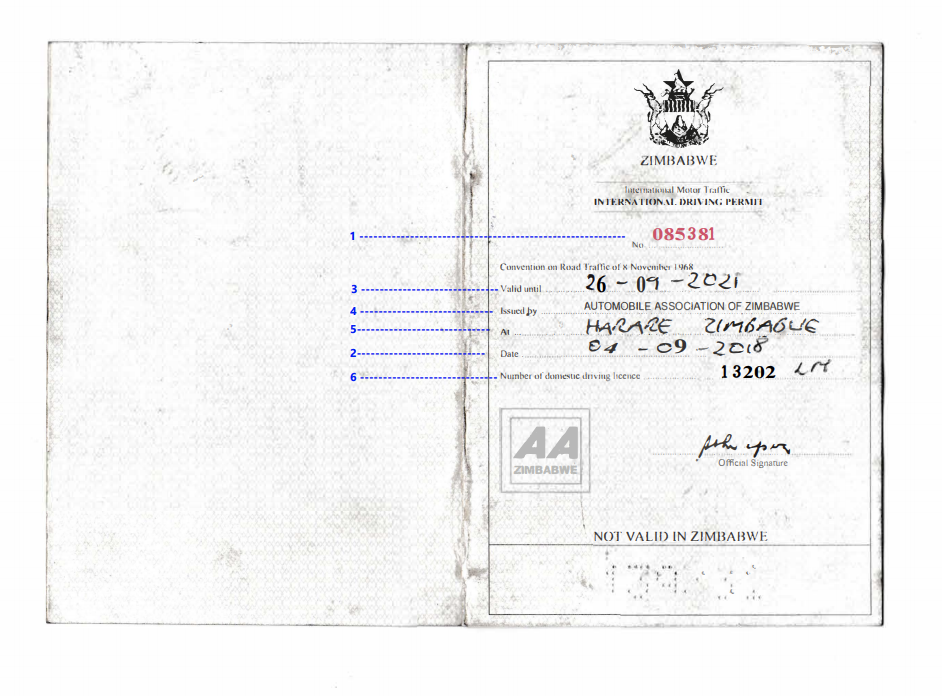 ZIMBABWE
International Motor Traffic
INTERNATIONAL DRIVING PERMIT
1
No 085381
Convention on Road Traffic of 8 November 1968
3 Valid until 26 - 09 - 2021
4 Issued by AUTOMOBILE ASSOCIATION OF ZIMBABWE
5 At HARARE ZIMBABWE
2 Date 04 - 09 - 2018
6 Number of domestic driving licence 13202 LM
AA
ZIMBABWE
Official Signature
NOT VALID IN ZIMBABWE